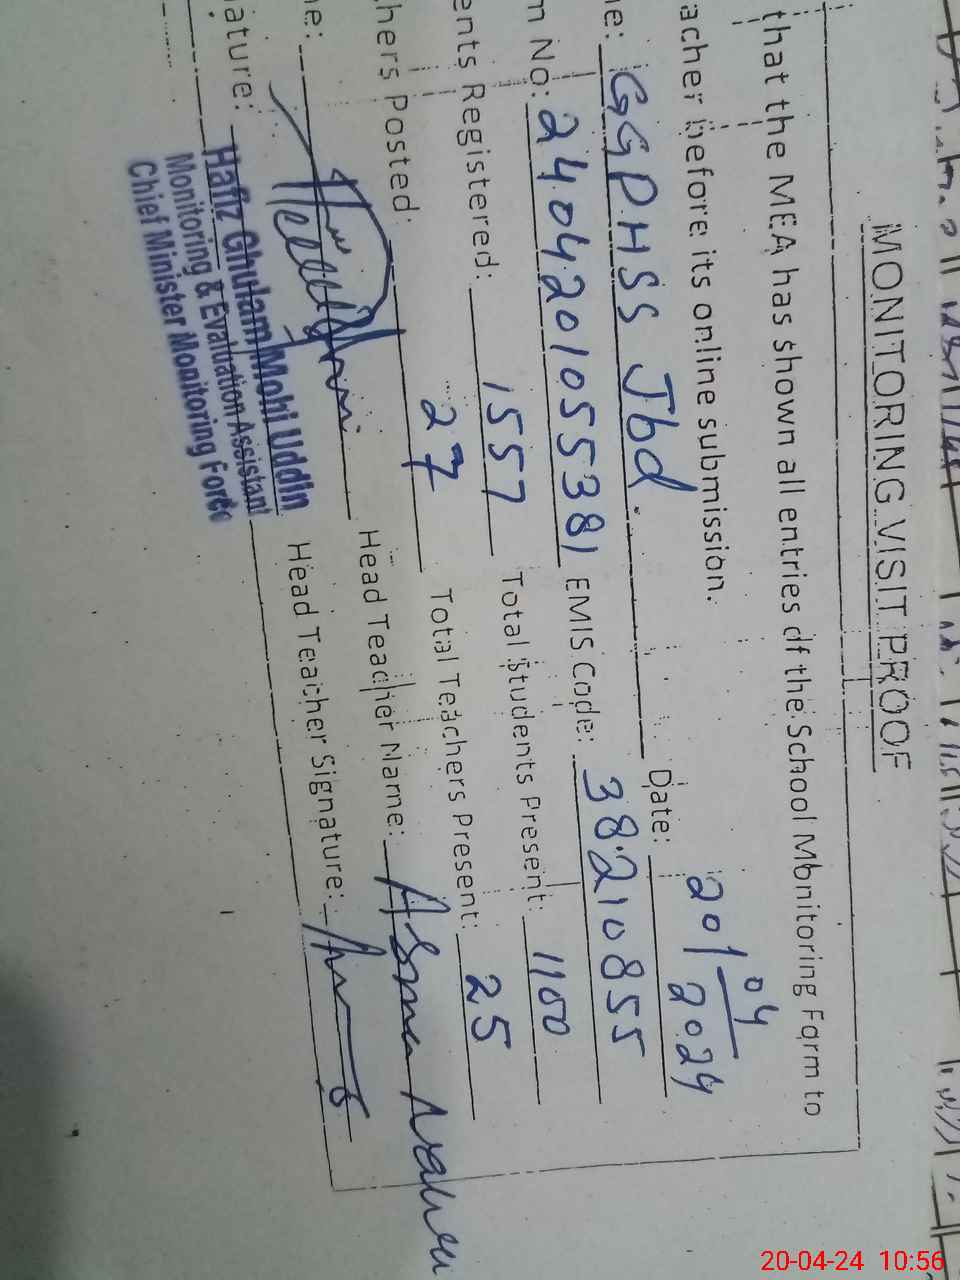 MONITORING VISIT PROOF
that the MEA has shown all entries of the School Monitoring Form to
acher before its online submission.
e: GGPHSS Jbd. Date: 20/04/2024
m No: 2404201055381 EMIS Code: 38210855
ents Registered: 1557 Total Students Present: 1100
hers Posted: 27 Total Teachers Present: 25
ne: Head Teacher Name: Asma
ature: Head Teacher Signature:
Hafiz Ghulam Mohi Uddin
Monitoring & Evaluation Assistant
Chief Minister Monitoring Force
20-04-24 10:56